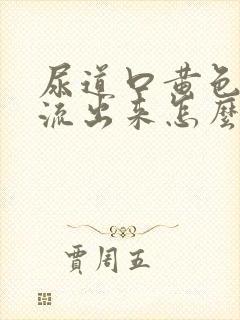 尿道口黄色
流出来怎麼
賈周五